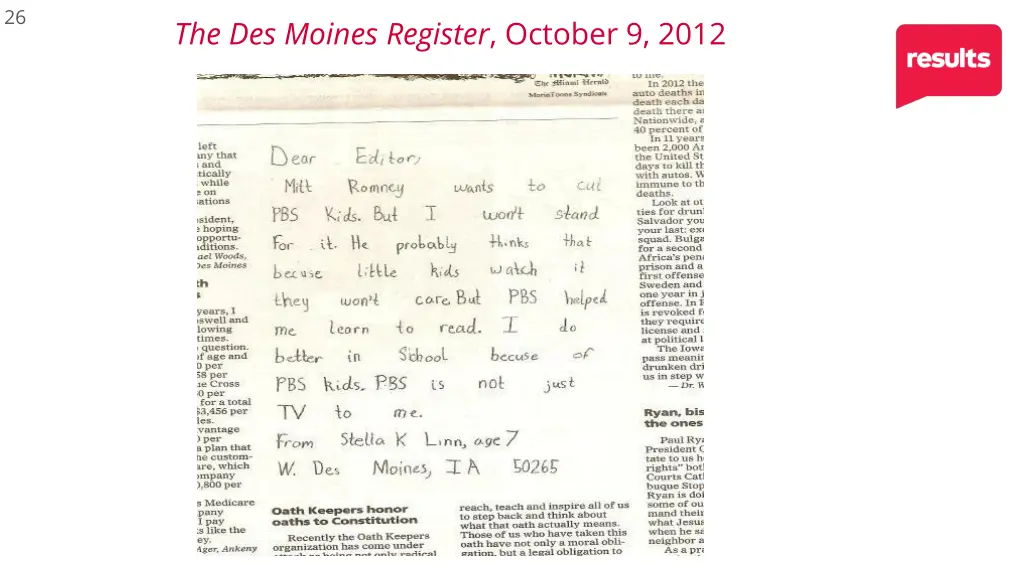 26
The Des Moines Register, October 9, 2012
results
The Miami Herald
MorinToons Syndicate
left
any that
and
tically
while
e on
sations
esident,
e hoping
opportu-
ditions.
ael Woods,
Des Moines
th
s
years, I
swell and
lowing
times.
question.
of age and
0 per
58 per
ue Cross
0 per
for a total
$3,456 per
les.
vantage
0 per
a plan that
he custom-
are, which
ompany
0,800 per
s Medicare
pany
I pay
s like the
ey.
Ager, Ankeny
Dear Editor,
Mitt Romney wants to cut
PBS Kids. But I won't stand
For it. He probably thinks that
becuse little kids watch it
they won't care. But PBS helped
me learn to read. I do
better in School becuse of
PBS kids. PBS is not just
TV to me.
From Stella K Linn, age 7
W. Des Moines, IA 50265
Oath Keepers honor
oaths to Constitution
Recently the Oath Keepers
organization has come under
attack as being not only radical
reach, teach and inspire all of us
to step back and think about
what that oath actually means.
Those of us who have taken this
oath have not only a moral obli-
gation, but a legal obligation to
to me.
In 2012 the
auto deaths in
death each da
death there a
Nationwide, a
40 percent of
In 11 years
been 2,000 A
the United St
days to kill th
with autos. W
immune to th
deaths.
Look at ot
ties for drun
Salvador you
your last: exe
squad. Bulga
for a second
Africa's pena
prison and a
first offense
Sweden and
one year in j
offense. In
is revoked f
they require
license and
at political l
The Iowa
pass meanin
drunken dri
us in step w
— Dr. W
Ryan, bis
the ones
Paul Rya
President O
tate to us h
rights" both
Courts Cath
buque Stop
Ryan is doi
some of ou
mand their
what Jesus
when he sa
neighbor a
As a pra